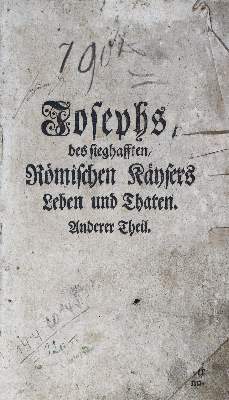 190
Josephs,
des sieghafften/
Römischen Käysers
Leben und Thaten.
Anderer Theil.